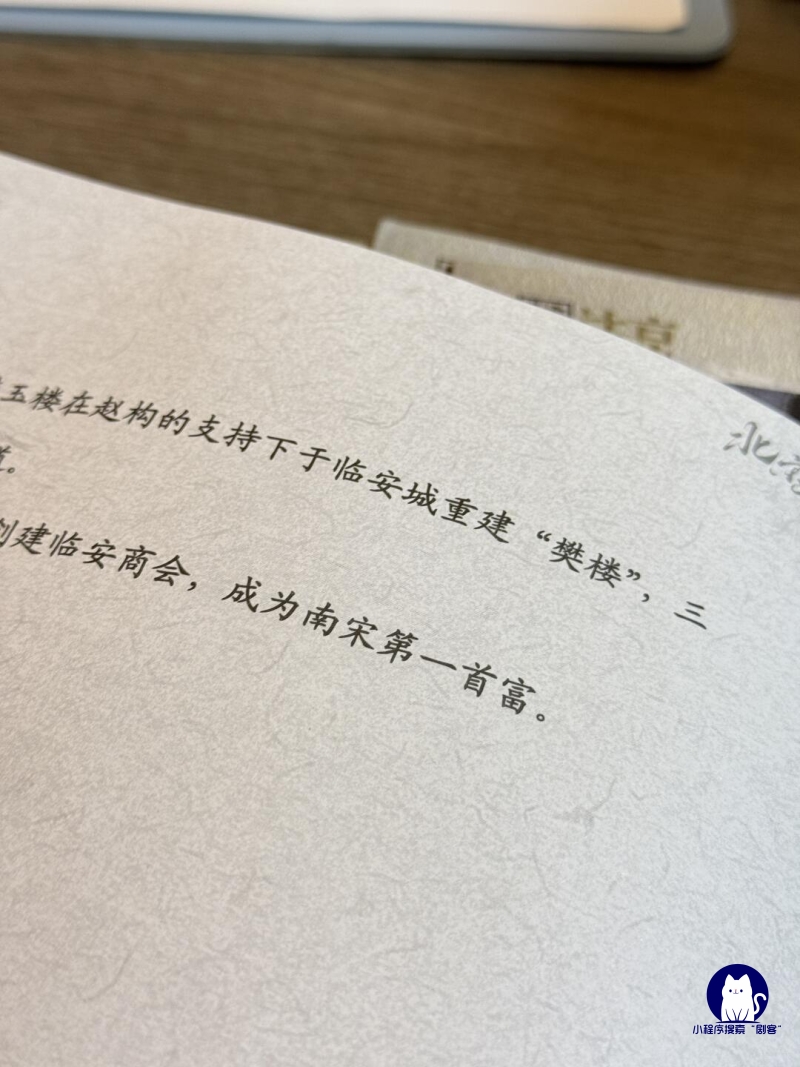 玉楼在赵构的支持下于临安城重建“樊楼”，三
道。
创建临安商会，成为南宋第一首富。
北
小程序搜索“剧客”